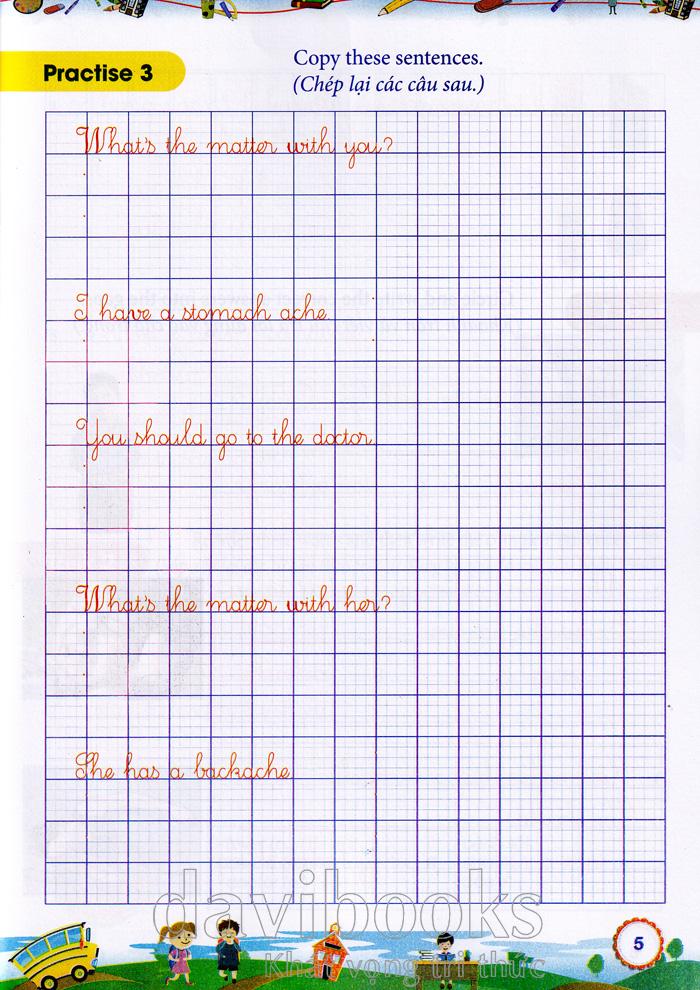 Practise 3
Copy these sentences.
(Chép lại các câu sau.)
What's the matter with you?
I have a stomach ache.
You should go to the doctor.
What's the matter with her?
She has a backache.
davibooks
Khát vọng tri thức
5